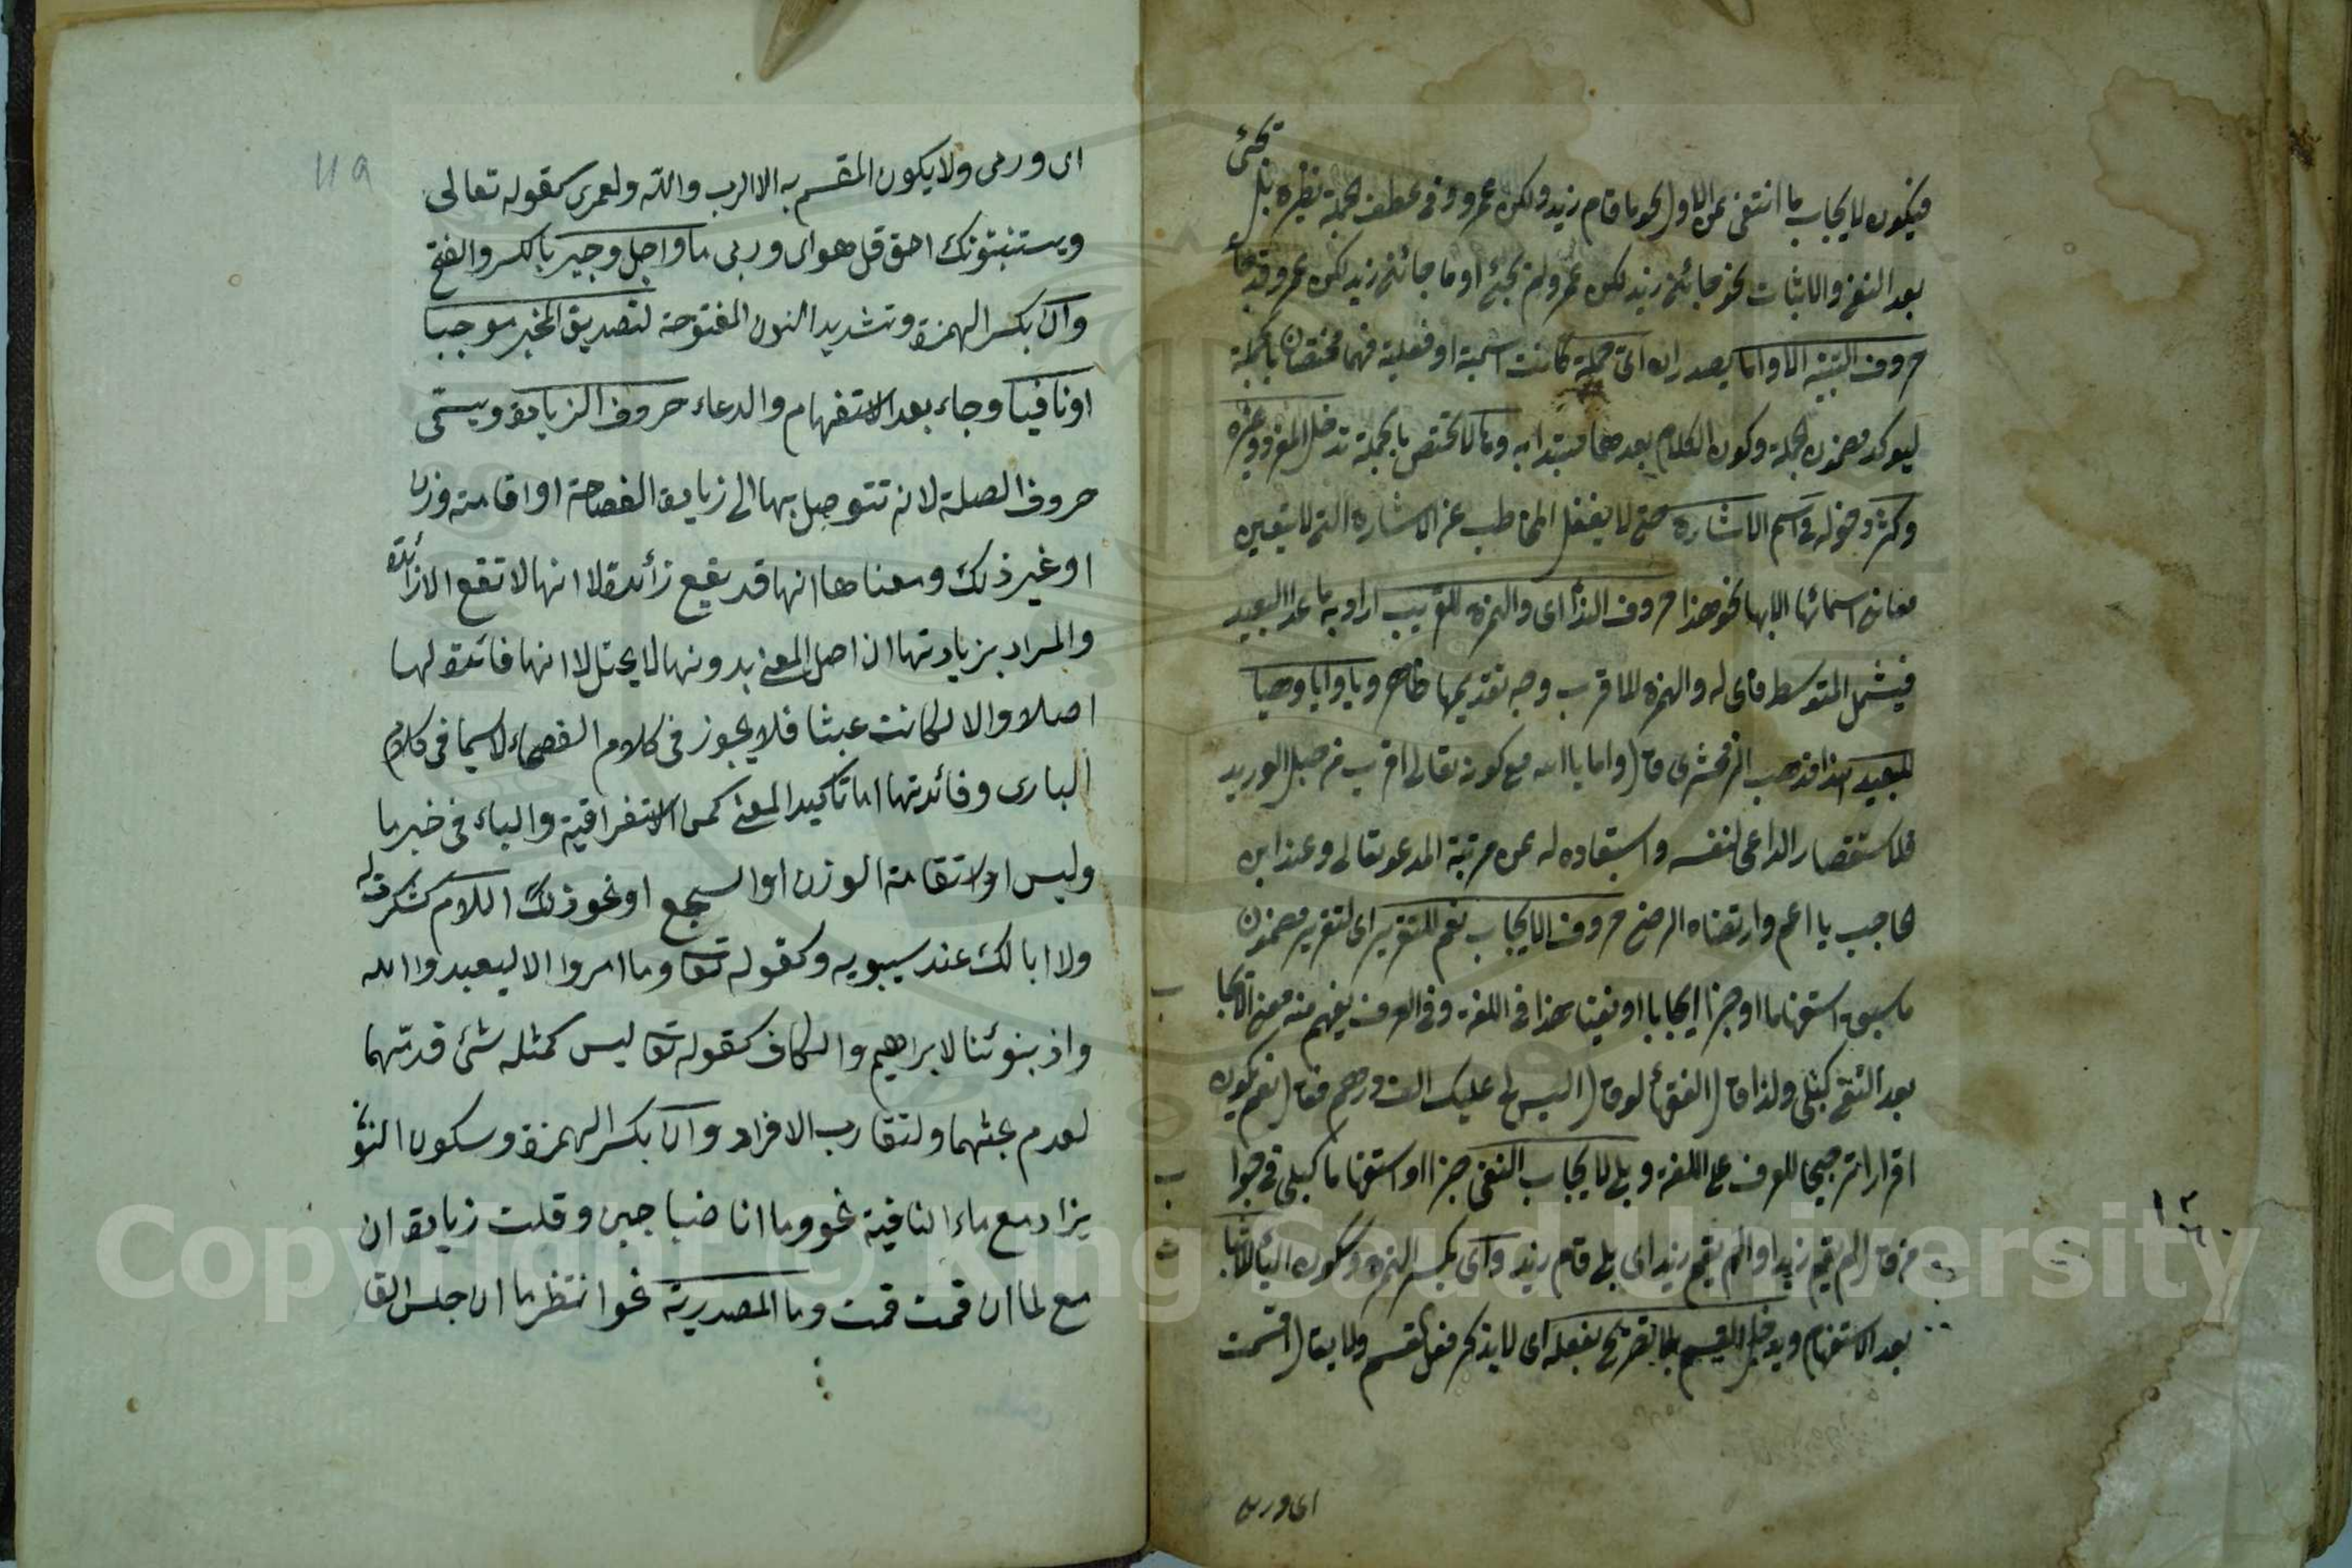 تجئ
فيكون لايجاب ما انتفى عن الاول نحو ما قام زيد ولكن عمرو وفى عطف الجملة نظيره بل
بعد النفى والاثبات نحو جائنى زيد لكن عمرو لم يجئ او ما جائنى زيد لكن عمرو قد جاء
حروف التنبيه الا واما يصدر ان اى جملة كانت اسمية او فعلية فهما مختصان بالجملة
ليوكد مضمون الجملة وكون الكلام بعدهما مبتدا به وها لا تختص بالجملة تدخل المفرد وغيره
وكثر دخوله فى اسم الاشارة حتى لا يغفل المخاطب عن الاشارة التى لا يتعين
معانى اسمائها الا بها نحو هذا حروف الندا اى والهمزة للقريب اراد به ما عدا البعيد
فيشمل المتوسط فاى له والهمزة لما قرب وجه تقديمها ظاهر ويا وايا وهيا
للبعيد هذا مذهب الزمخشرى قال واما يا الله مع كونه تعالى اقرب من حبل الوريد
فلاستقصار الداعى لنفسه واستبعاده له عن مرتبة المدعو تعالى وعند ابن
الحاجب يا اعم وارتضاه الرضى حروف الايجاب نعم للتقرير اى لتقرير مضمون
ما سبق استفهاما او خبرا ايجابا او نفيا هذا فى اللغة وفى العرف يفهم منه معنى الايجا
بعد النفى كبلى ولذا قال الفقهاء لو قال اليس لى عليك الف درهم فقال نعم يكون
اقرارا ترجيحا للعرف على اللغة وبلى لايجاب النفى خبرا او استفهاما كبلى فى جواب
من قال لم يقم زيد او الم يقم زيد اى بلى قام زيد واى بكسر الهمزة وسكون الياء للاثبات
بعد الاستفهام ويدخل القسم بلا تصريح بفعله اى لا يذكر فعل القسم ولا يقال اقسمت
اى وربى
١١٩
اى وربى ولا يكون المقسم به الا الرب والله ولعمرى كقوله تعالى
ويستنبئونك احق قل هو اى وربى ما واجل وجير بالكسر والفتح
وان بكسر الهمزة وتشديد النون المفتوحة لتصديق المخبر موجبا
او نافيا وجاء بعد الاستفهام والدعاء حروف الزيادة ويسمى
حروف الصلة لانه تتوصل بها الى زيادة الفصاحة او اقامة وزن
او غير ذلك ومعناها انها قد يقع زائدة لا انها لا تقع الا زائدة
والمراد بزيادتها ان اصل المعنى بدونها لا يختل لا انها فائدة لها
اصلا والا لكانت عبثا فلا يجوز فى كلام الفصحاء لاسيما فى كلام
البارى وفائدتها اما تاكيد المعنى كمن الاستغراقية والباء فى خبر ما
وليس او لاستقامة الوزن او السجع او نحو ذلك اللام كشكرت له
ولا ابا لك عند سيبويه وكقوله تعا وما امروا الا ليعبدوا الله
واذ بنوئنا لابراهيم والكاف كقوله تعا ليس كمثله شئ قدمهما
لعدم بحثهما ولتقارب الافراد وان بكسر الهمزة وسكون النو
يزاد مع ماء النافية نحو وما انا ضبا جبن وقلت زيادة ان
مع لما ان قمت قمت وما المصدرية نحو انتظر ما ان جلس القا
Copyright © King Saud University